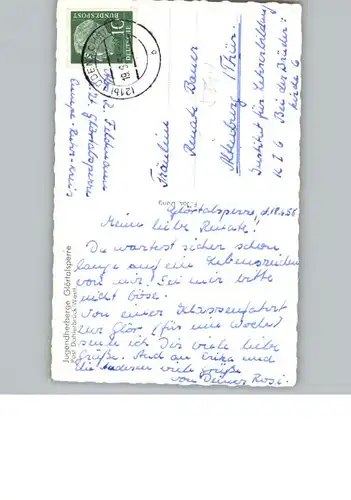 Glörtalsperre, d. 18.6.58
Meine liebe Renate!
Du wartest sicher schon
lange auf ein Lebenszeichen
von mir. Sei mir bitte
nicht böse.
Von einer Klassenfahrt
zur Glör (für eine Woche)
sende ich Dir viele liebe
Grüße. Auch an Erika und
die anderen viele Grüße
von Deiner Rosi.
Fräulein
Renate Bauer
Altenburg (Thür.)
Institut für Lehrerbildung
K I G Bei der Brüder-
kirche 6
R. Feldmann
Glörtalsperre
Ennepe-Ruhr-Kreis
Jugendherberge Glörtalsperre
Post Dahlerbrück/Westf.
10
(21b)